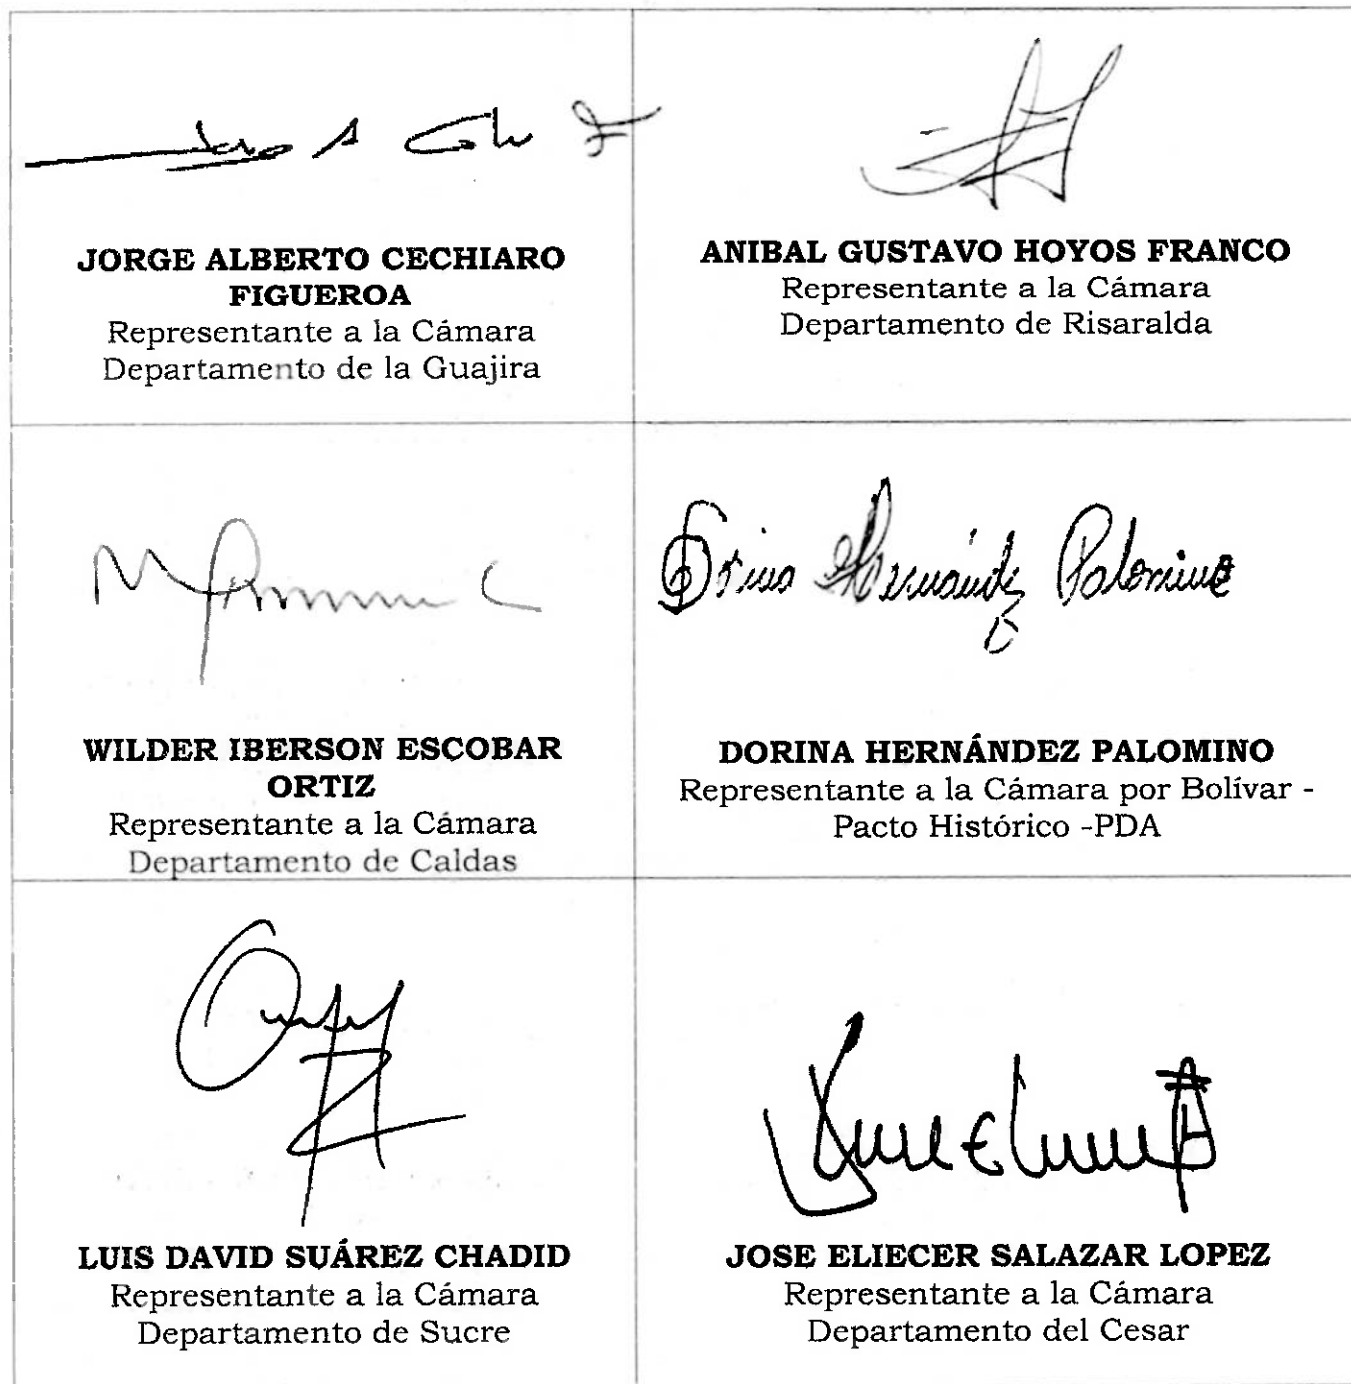 JORGE ALBERTO CECHIARO
FIGUEROA
Representante a la Cámara
Departamento de la Guajira
ANIBAL GUSTAVO HOYOS FRANCO
Representante a la Cámara
Departamento de Risaralda
WILDER IBERSON ESCOBAR
ORTIZ
Representante a la Cámara
Departamento de Caldas
Dorina Hernández Palomino
DORINA HERNÁNDEZ PALOMINO
Representante a la Cámara por Bolívar -
Pacto Histórico -PDA
LUIS DAVID SUÁREZ CHADID
Representante a la Cámara
Departamento de Sucre
JOSE ELIECER SALAZAR LOPEZ
Representante a la Cámara
Departamento del Cesar